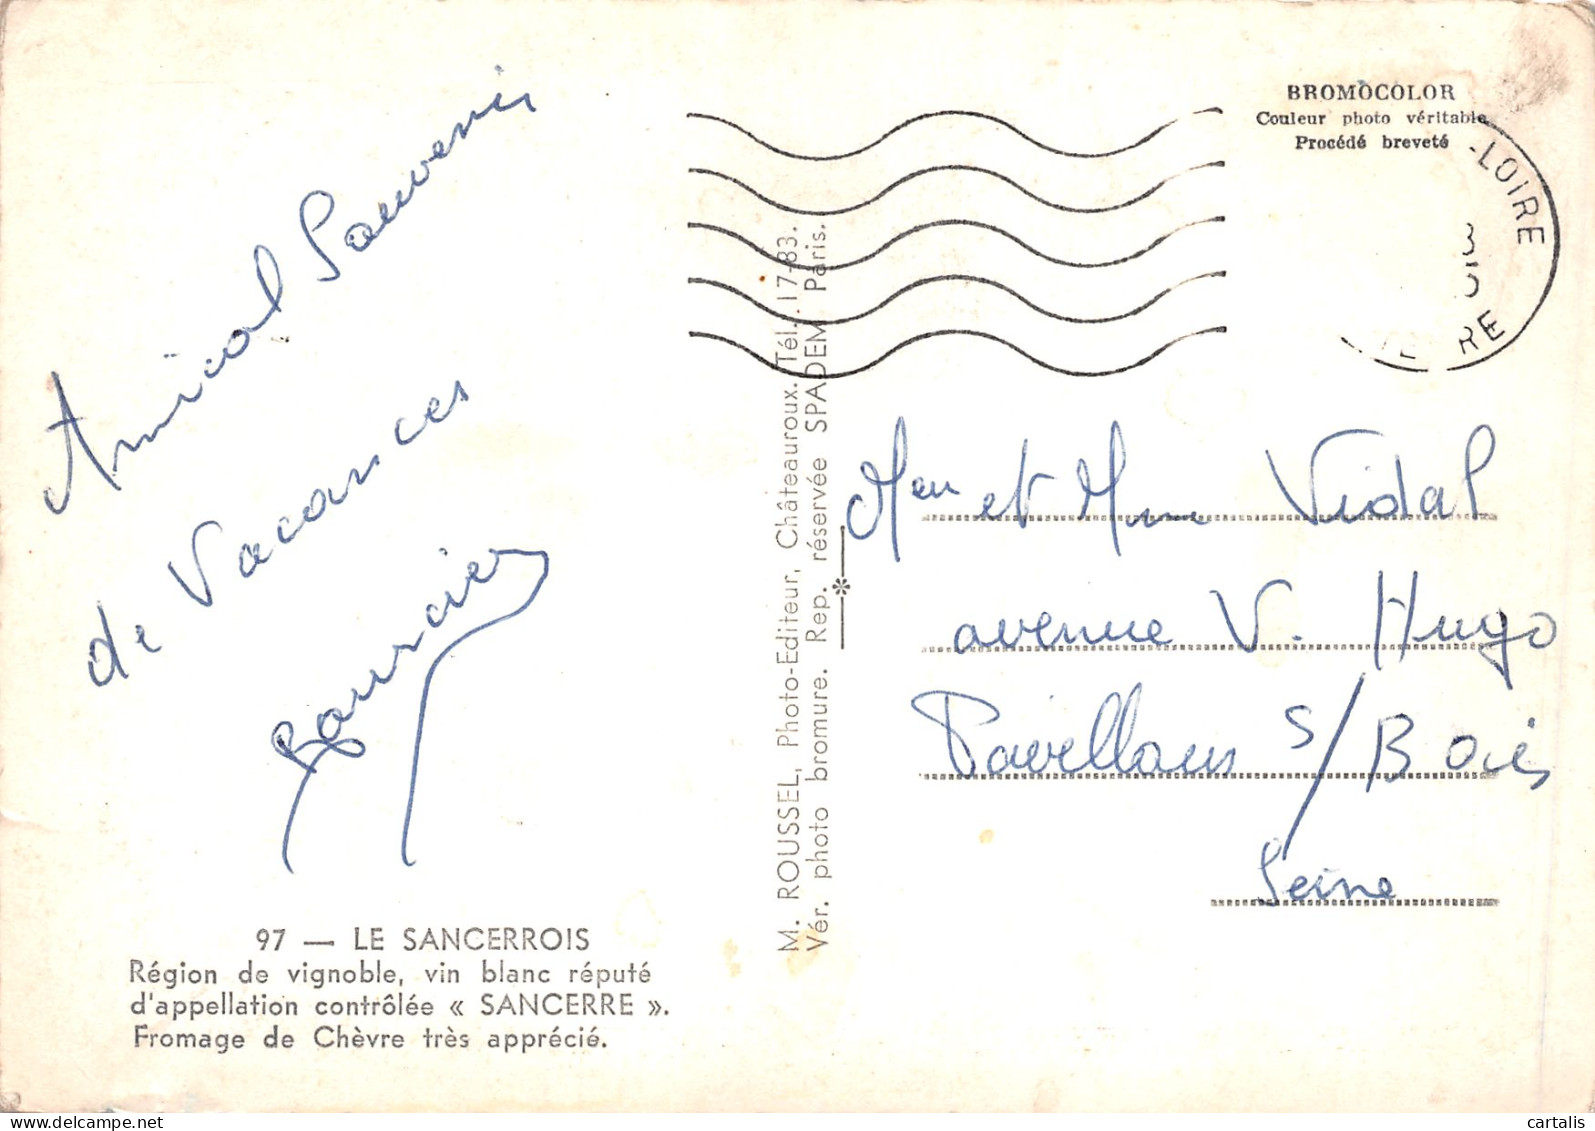 Amical Souvenir
de Vacances
97 — LE SANCERROIS
Région de vignoble, vin blanc réputé
d'appellation contrôlée « SANCERRE ».
Fromage de Chèvre très apprécié.
M. ROUSSEL, Photo-Editeur, Châteauroux. Tél. 17-83.
Vér. photo bromure. Rep. réservée SPADEM Paris.
BROMOCOLOR
Couleur photo véritable
Procédé breveté
-LOIRE
Mr et Mme Vidal
avenue V. Hugo
Pavillons s/ Bois
Seine
cartalis
delcampe.net